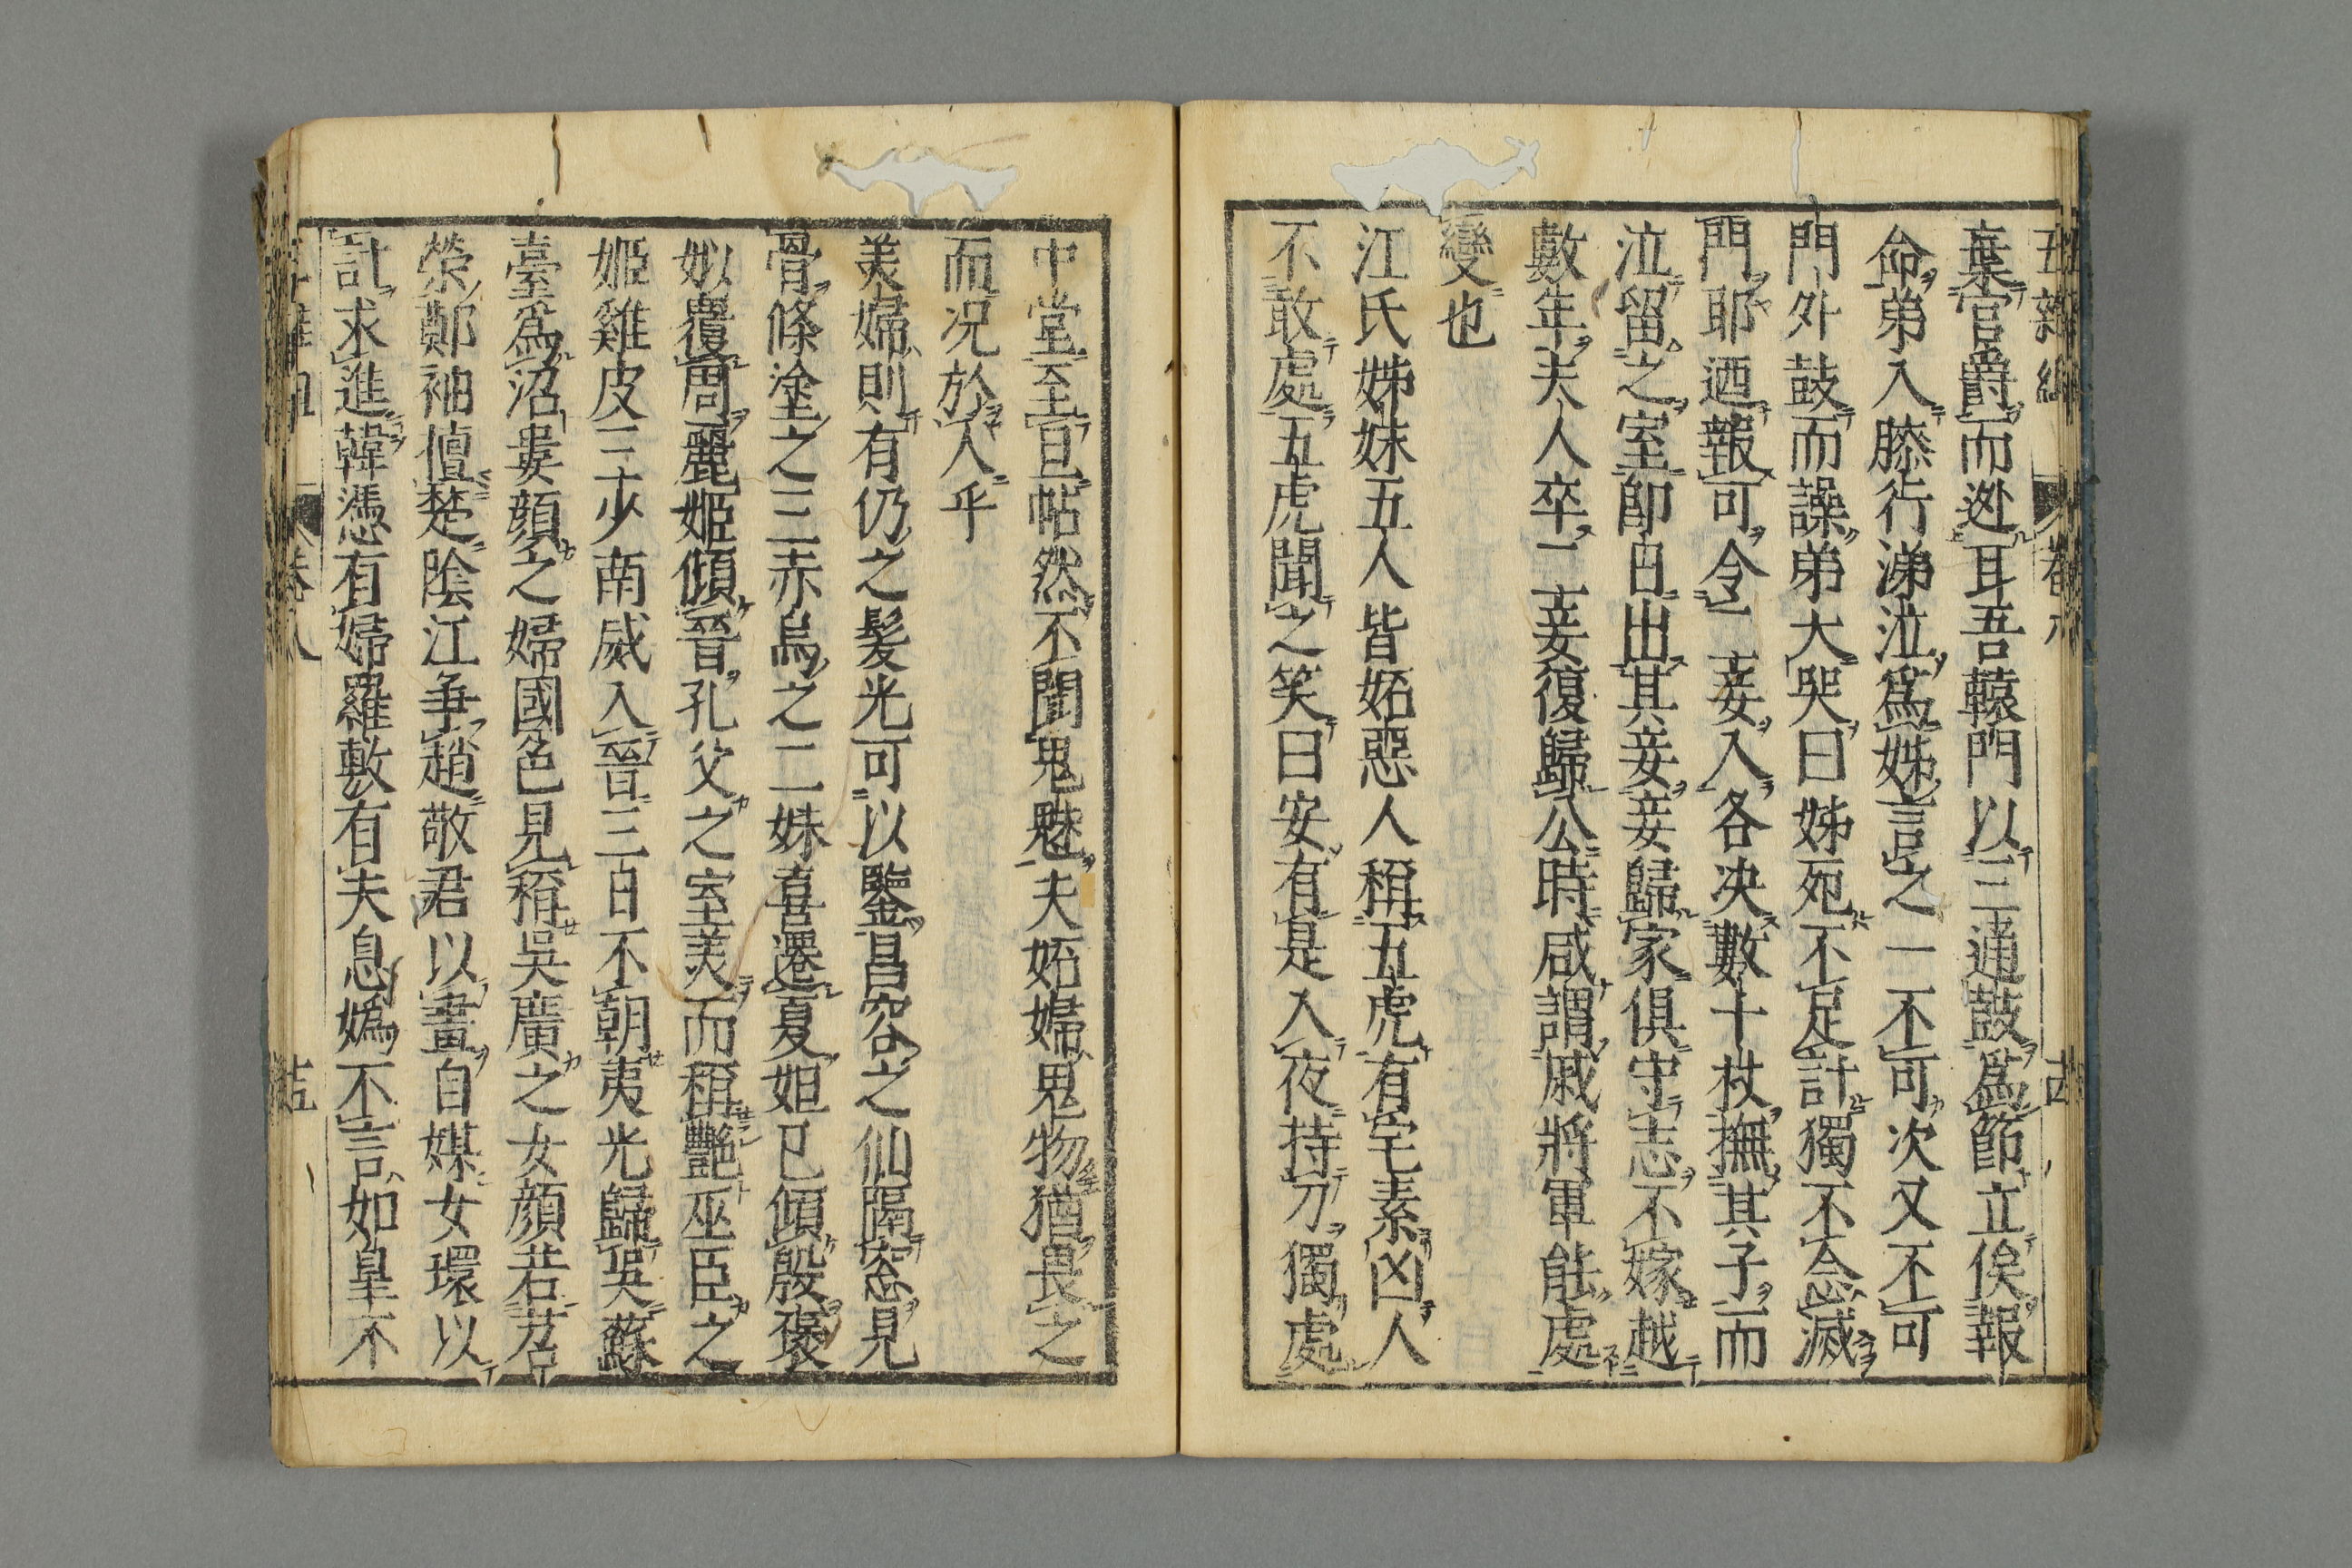 棄官爵而逃耳吾轅門以三通鼓爲節立俟報
命弟入膝行涕泣爲姊言之一不可次又不可
門外鼓而譟弟大哭曰姊死不足計獨不念滅
門耶迺報可令二妾入各决數十杖撫其子而
泣留之室卽日出其妾妾歸家俱守志不嫁越
數年夫人卒二妾復歸公時咸謂戚將軍能處
變也
江氏姊妹五人皆妬惡人稱五虎有宅素凶人
不敢處五虎聞之笑曰安有是入夜持刀獨處
中堂至旦帖然不聞鬼魅夫妬婦鬼物猶畏之
而况於人乎
美婦則有仍之髮光可以鑒昌容之仙隔窓見
骨條塗之三赤烏之二妹喜遷夏妲已傾殷褒
姒覆周麗姬傾晉孔父之室美而稱艷巫臣之
姬雞皮三少南威入晉三日不朝夷光歸吳蘇
臺爲沼婁顏之婦國色見稱吳廣之女顏若苕
榮鄭袖擅楚陰江爭趙敬君以畫自媒女環以
計求進韓憑有婦羅敷有夫息嬀不言如皐不